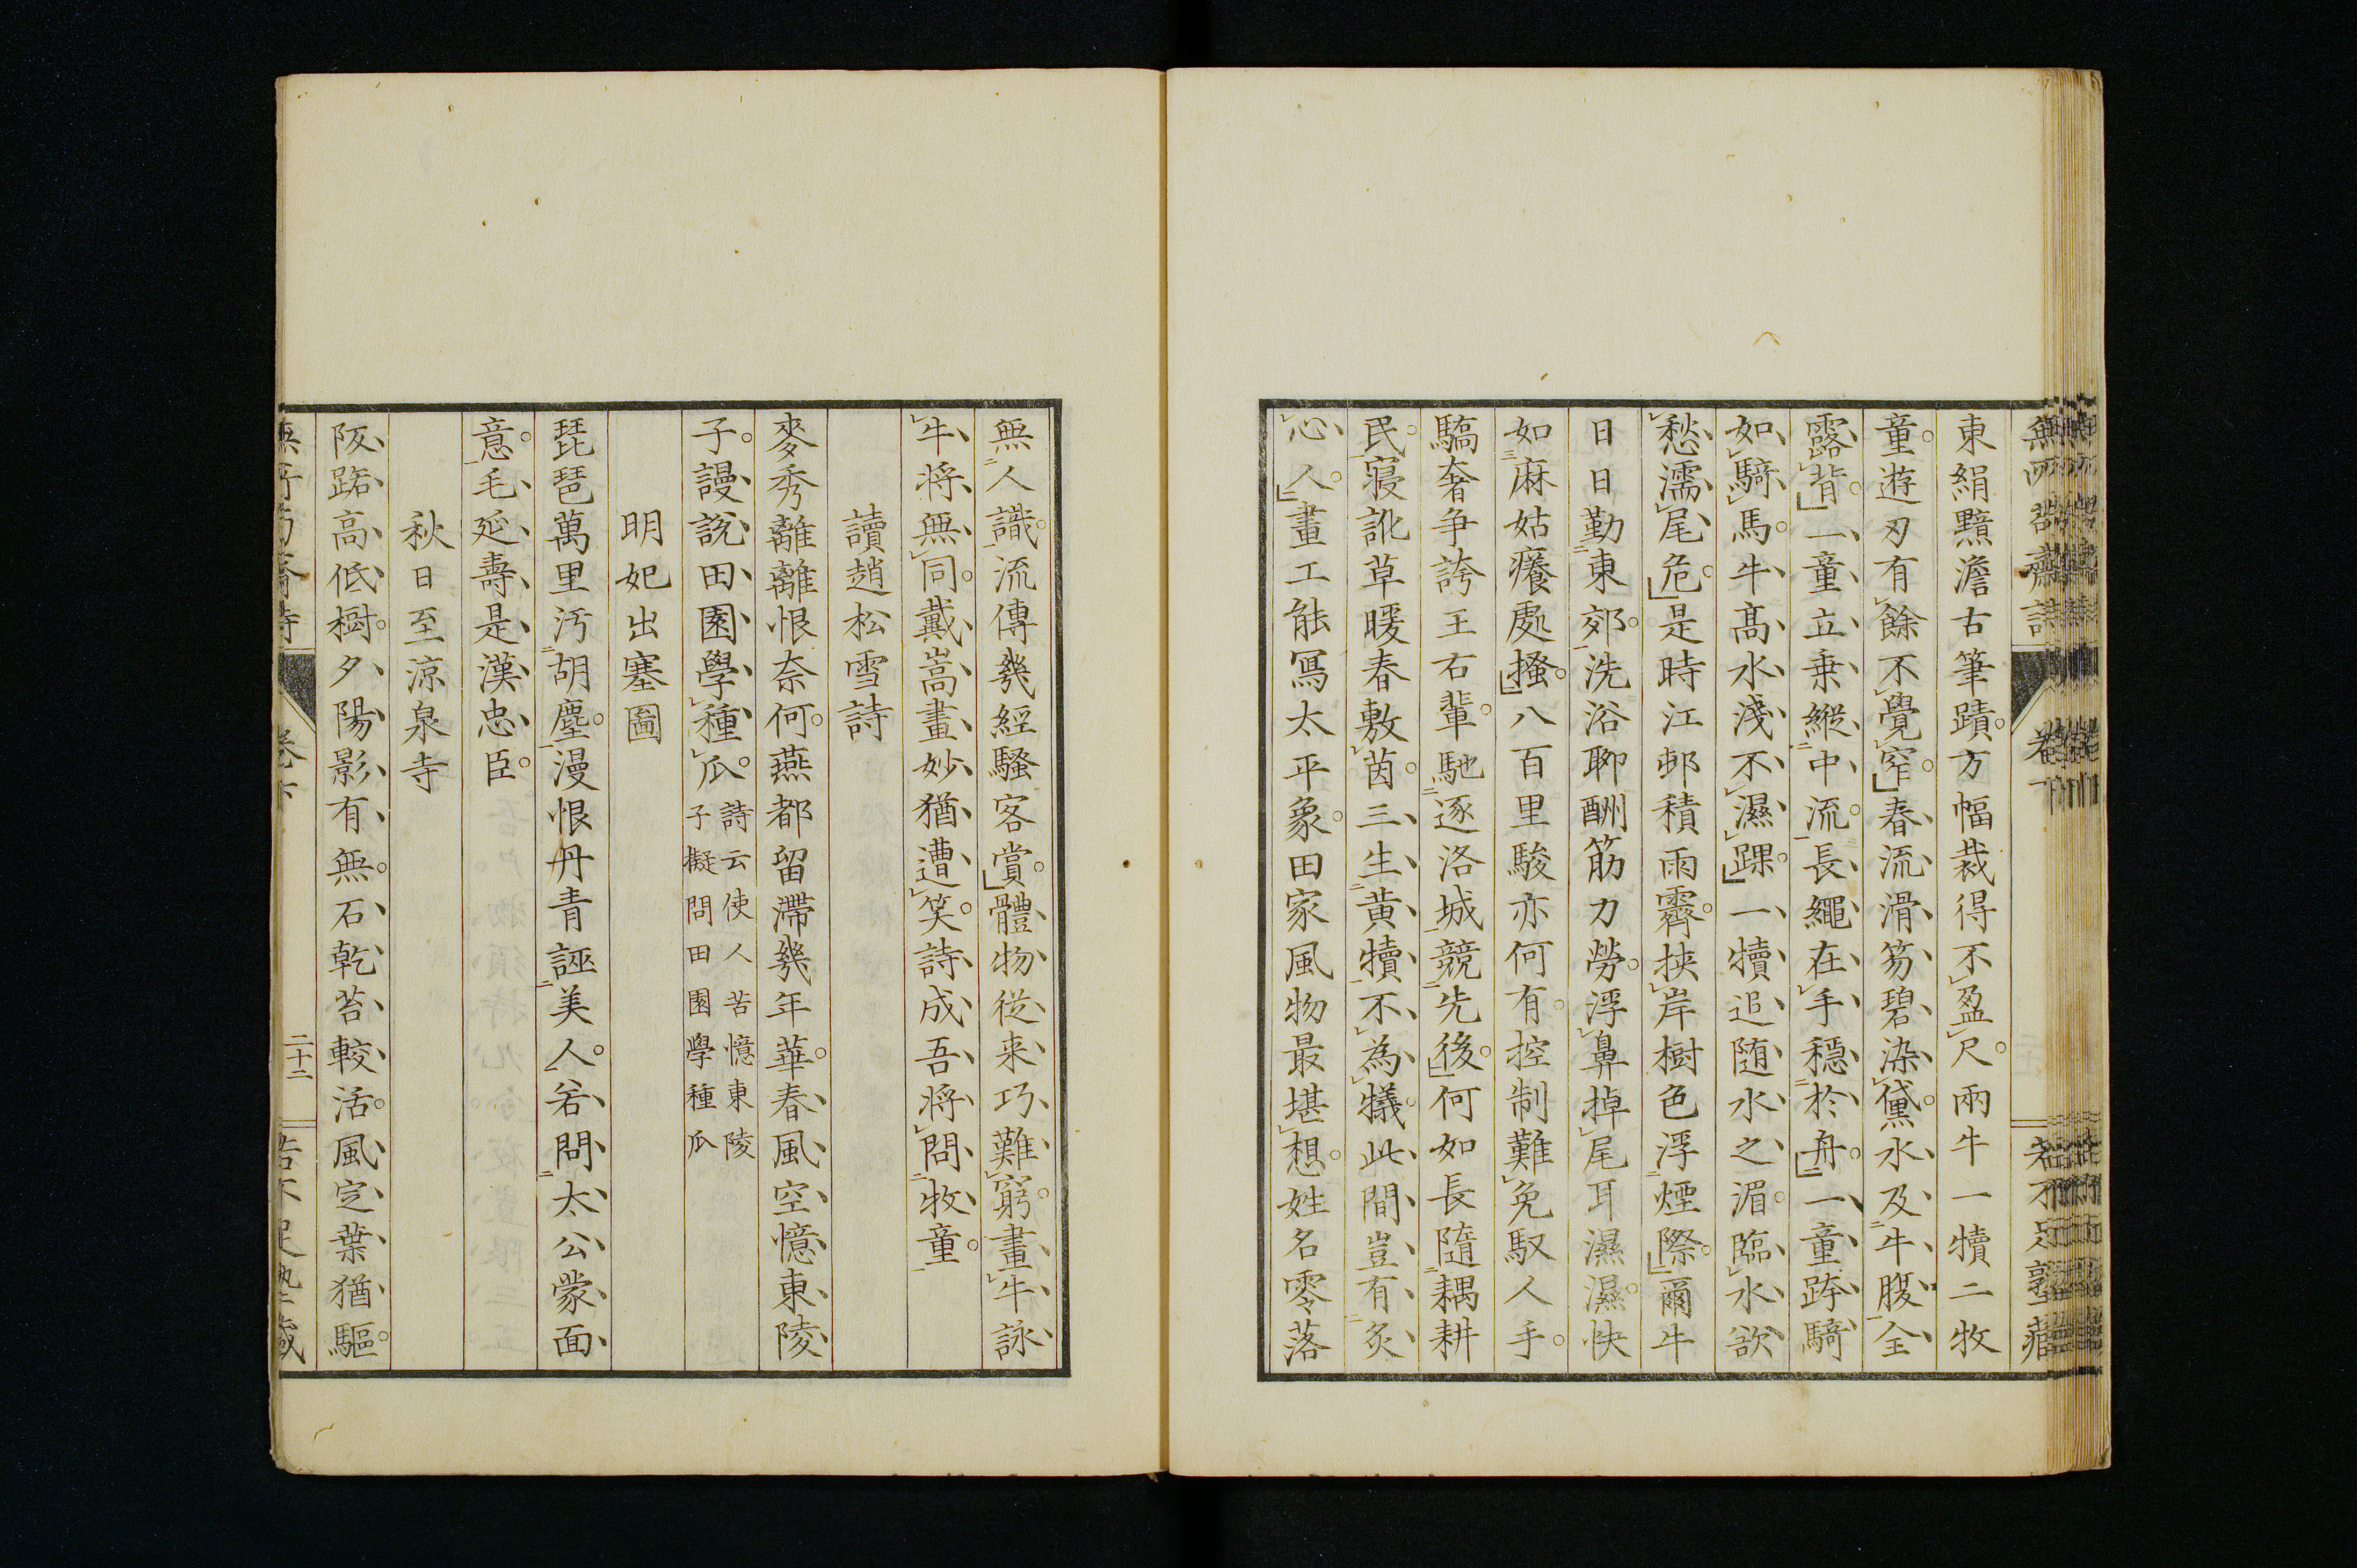 東絹黯澹古筆蹟方幅裁得不盈尺兩牛一犢二牧
童遊刃有餘不覺窄春流滑笏碧染黛水及牛腹全
露背一童立乗縱中流長繩在手穩於舟一童跨騎
如騎馬牛高水淺不濕踝一犢追随水之湄臨水欲
愁濡尾危是時江邨積雨霽挟岸樹色浮煙際爾牛
日日勤東郊洗浴聊酬筋力勞浮鼻掉尾耳濕濕快
如麻姑癢處搔八百里駿亦何有控制難免馭人手
驕奢争誇王右輩馳逐洛城競先後何如長隨耦耕
民寝訛草暖春敷茵三生黄犢不為犧此間豈有炙
心人畫工能冩太平象田家風物最堪想姓名零落
無人識流傳幾經騷客賞體物從来巧難窮畫牛詠
牛将無同戴嵩畫妙猶遭笑詩成吾将問牧童
讀趙松雪詩
麥秀離離恨奈何燕都留滯幾年華春風空憶東陵
子謾説田園學種瓜
詩云使人苦憶東陵
子擬問田園學種瓜
明妃出塞圖
琵琶萬里汚胡塵漫恨丹青誣美人若問太公蒙面
意毛延壽是漢忠臣
秋日至涼泉寺
阪路高低樹夕陽影有無石乾苔較活風定葉猶驅
二十二